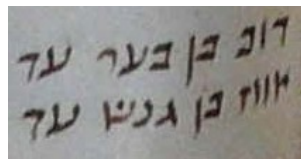 דוב בן בער עד
אווז בן גנש עד